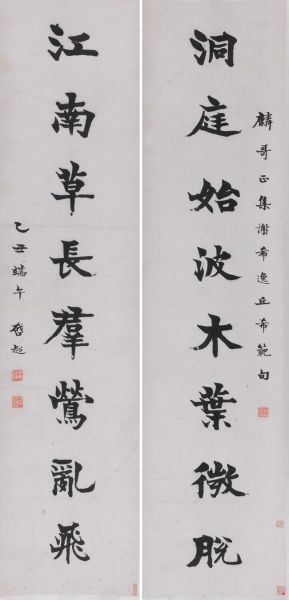 麟哥正集謝希逸丘希範句
洞庭始波木葉微脫
江南草長羣鶯亂飛
乙丑端午 啓超